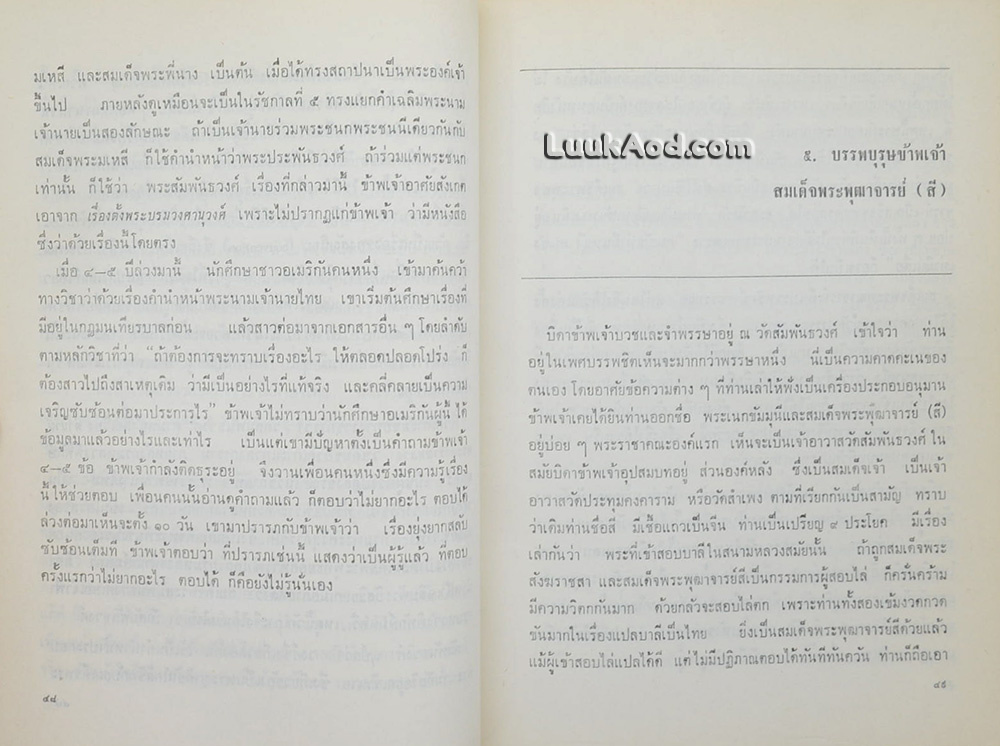 มเหสี และสมเด็จพระพี่นาง เป็นต้น เมื่อได้ทรงสถาปนาเป็นพระองค์เจ้า
ขึ้นไป ภายหลังดูเหมือนจะเป็นในรัชกาลที่ ๕ ทรงแยกคำเฉลิมพระนาม
เจ้านายเป็นสองลักษณะ ถ้าเป็นเจ้านายร่วมพระชนกพระชนนีเดียวกันกับ
สมเด็จพระมเหสี ก็ใช้คำนำหน้าว่าพระประพันธวงศ์ ถ้าร่วมแต่พระชนก
เท่านั้น ก็ใช้ว่า พระสัมพันธวงศ์ เรื่องที่กล่าวมานี้ ข้าพเจ้าอาศัยสังเกต
เอาจาก เรื่องตั้งพระบรมวงศานุวงศ์ เพราะไม่ปรากฏแก่ข้าพเจ้า ว่ามีหนังสือ
ซึ่งว่าด้วยเรื่องนี้โดยตรง
เมื่อ ๔–๕ ปีล่วงมานี้ นักศึกษาชาวอเมริกันคนหนึ่ง เข้ามาค้นคว้า
ทางวิชาว่าด้วยเรื่องคำนำหน้าพระนามเจ้านายไทย เขาเริ่มต้นศึกษาเรื่องที่
มีอยู่ในกฎมนเทียรบาลก่อน แล้วสาวต่อมาจากเอกสารอื่น ๆ โดยลำดับ
ตามหลักวิชาที่ว่า “ถ้าต้องการจะทราบเรื่องอะไร ให้ตลอดปลอดโปร่ง ก็
ต้องสาวไปถึงสาเหตุเดิม ว่ามีเป็นอย่างไรที่แท้จริง และคลี่คลายเป็นความ
เจริญซับซ้อนต่อมาประการไร” ข้าพเจ้าไม่ทราบว่านักศึกษาอเมริกันผู้นี้ ได้
ข้อมูลมาแล้วอย่างไรและเท่าไร เป็นแต่เขามีปัญหาตั้งเป็นคำถามข้าพเจ้า
๔–๕ ข้อ ข้าพเจ้ากำลังติดธุระอยู่ จึงวานเพื่อนคนหนึ่งซึ่งมีความรู้เรื่อง
นี้ ให้ช่วยตอบ เพื่อนคนนั้นอ่านดูคำถามแล้ว ก็ตอบว่าไม่ยากอะไร ตอบได้
ล่วงต่อมาเห็นจะตั้ง ๑๐ วัน เขามาปรารภกับข้าพเจ้าว่า เรื่องยุ่งยากสลับ
ซับซ้อนเต็มที ข้าพเจ้าตอบว่า ที่ปรารภเช่นนี้ แสดงว่าเป็นผู้รู้แล้ว ที่ตอบ
ครั้งแรกว่าไม่ยากอะไร ตอบได้ ก็คือยังไม่รู้นั่นเอง
๔๘
LuukAod.com
๕. บรรพบุรุษข้าพเจ้า
สมเด็จพระพุฒาจารย์ (สี)
บิดาข้าพเจ้าบวชและจำพรรษาอยู่ ณ วัดสัมพันธวงศ์ เข้าใจว่า ท่าน
อยู่ในเพศบรรพชิตเห็นจะมากกว่าพรรษาหนึ่ง นี่เป็นความคาดคะเนของ
ตนเอง โดยอาศัยข้อความต่าง ๆ ที่ท่านเล่าให้ฟังเป็นเครื่องประกอบอนุมาน
ข้าพเจ้าเคยได้ยินท่านออกชื่อ พระเนกขัมมุนีและสมเด็จพระพุฒาจารย์ (สี)
อยู่บ่อย ๆ พระราชาคณะองค์แรก เห็นจะเป็นเจ้าอาวาสวัดสัมพันธวงศ์ ใน
สมัยบิดาข้าพเจ้าอุปสมบทอยู่ ส่วนองค์หลัง ซึ่งเป็นสมเด็จเจ้า เป็นเจ้า
อาวาสวัดประทุมคงคาราม หรือวัดสำเพง ตามที่เรียกกันเป็นสามัญ ทราบ
ว่าเดิมท่านชื่อสี มีเชื้อแถวเป็นจีน ท่านเป็นเปรียญ ๙ ประโยค มีเรื่อง
เล่ากันว่า พระที่เข้าสอบบาลีในสนามหลวงสมัยนั้น ถ้าถูกสมเด็จพระ
สังฆราชสา และสมเด็จพระพุฒาจารย์สีเป็นกรรมการผู้สอบไล่ ก็ครั่นคร้าม
มีความวิตกกันมาก ด้วยกลัวจะสอบไล่ตก เพราะท่านทั้งสองเข้มงวดกวด
ขันมากในเรื่องแปลบาลีเป็นไทย ยิ่งเป็นสมเด็จพระพุฒาจารย์สีด้วยแล้ว
แม้ผู้เข้าสอบไล่แปลได้ดี แต่ไม่มีปฏิภาณตอบได้ทันทีทันควัน ท่านก็ถือเอา
๔๙